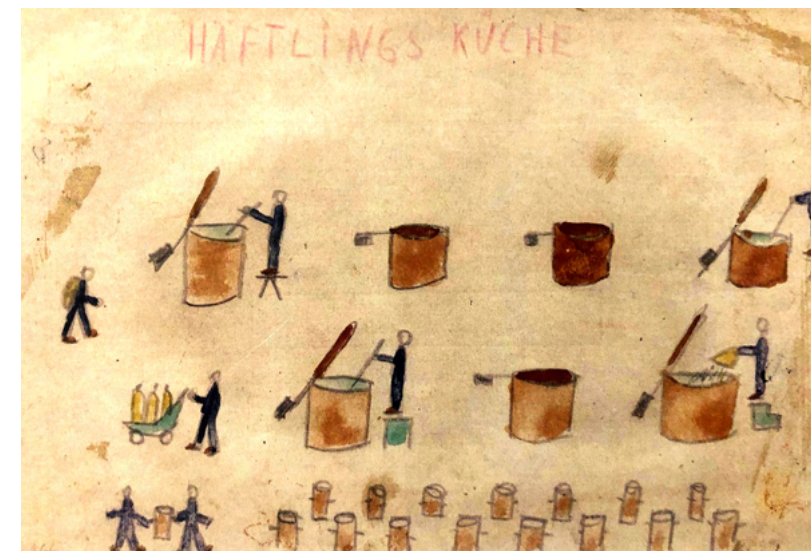 HÄFTLINGS KÜCHE